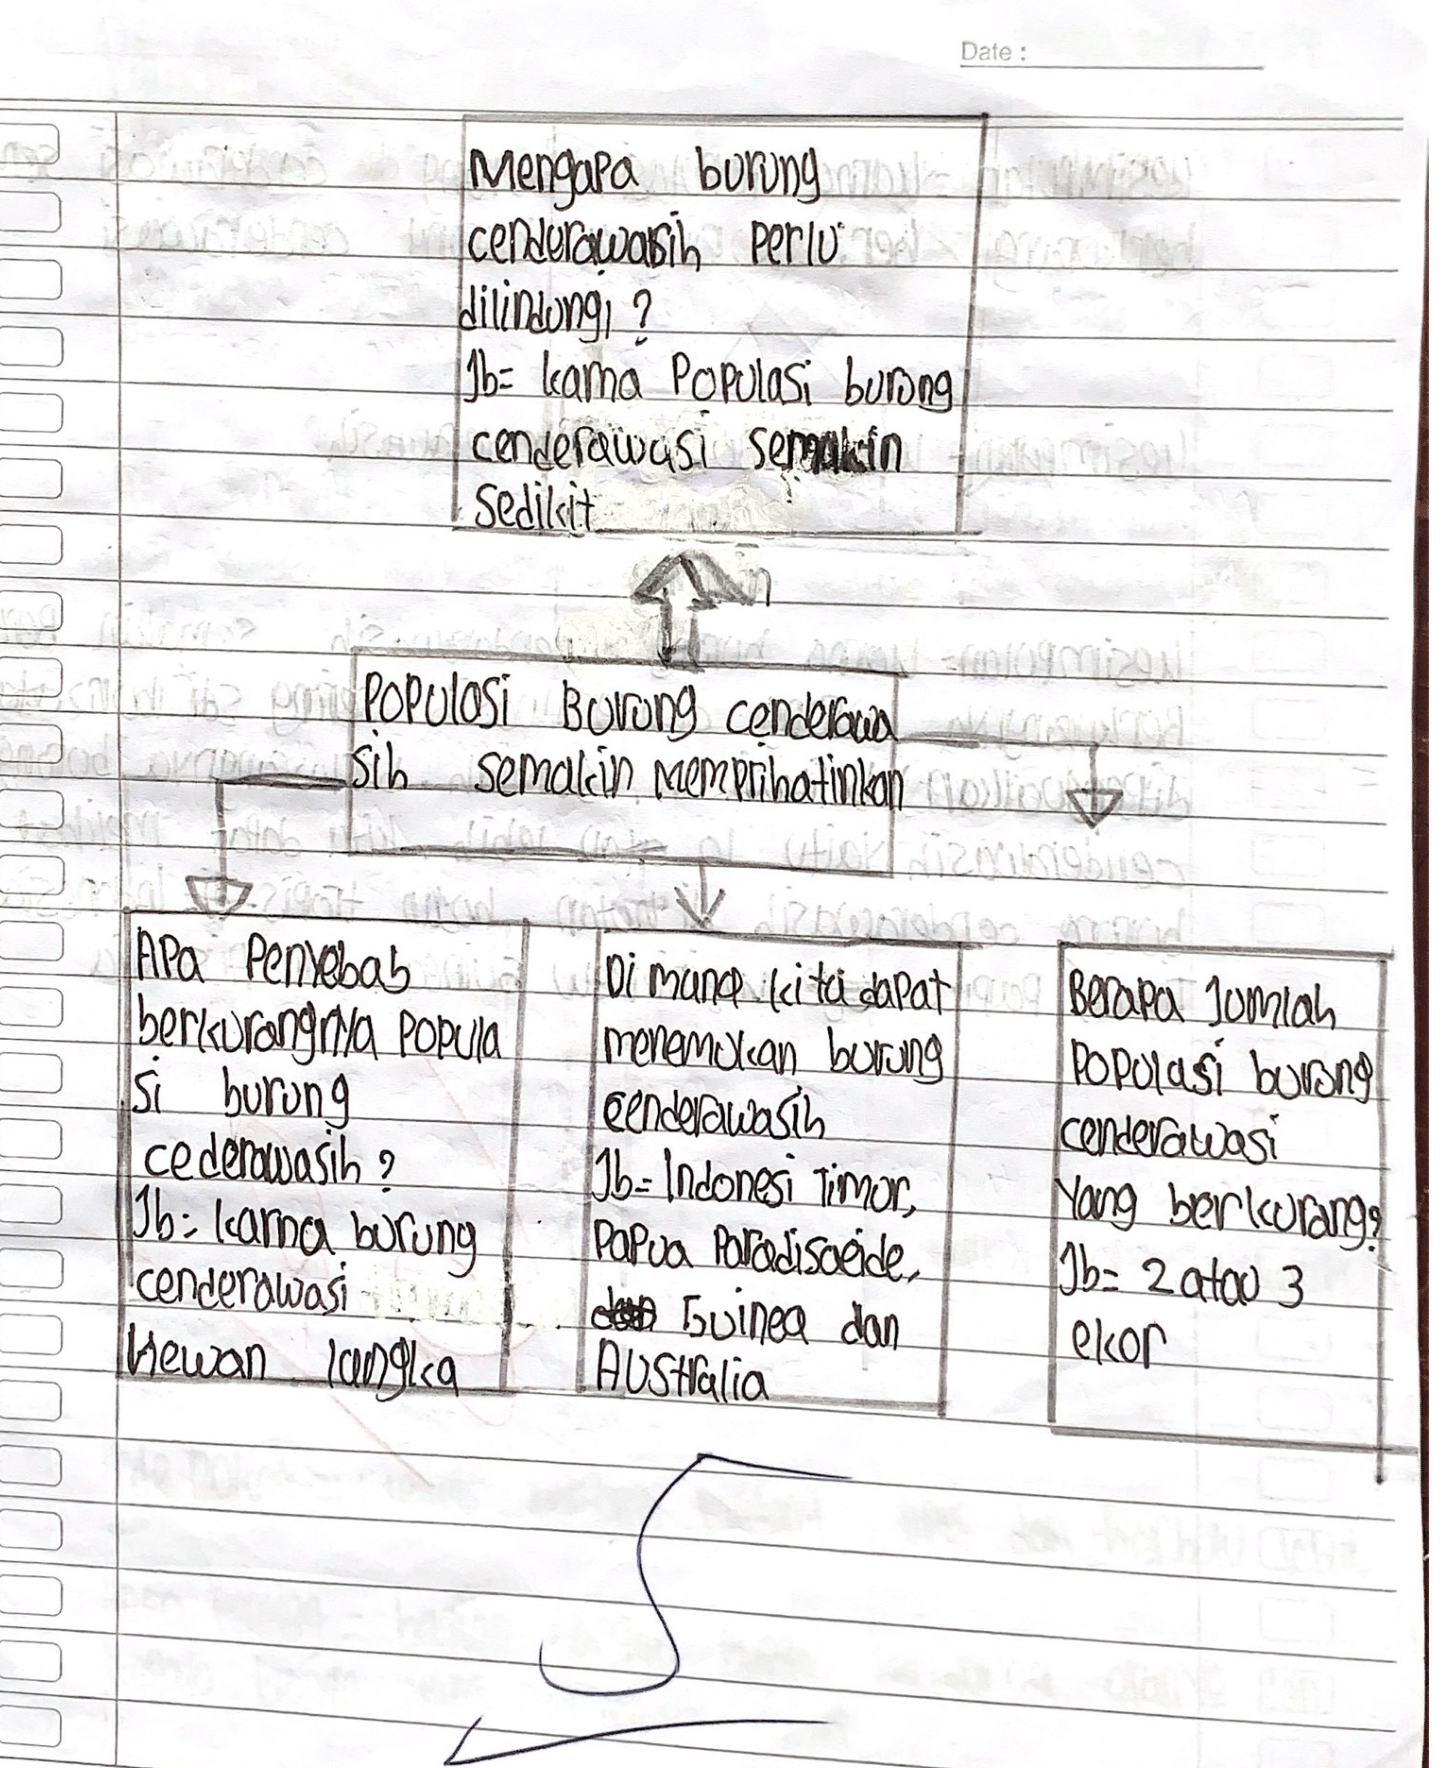 Date :
Mengapa burung
cenderawasih perlu
dilindungi ?
Jb= karna Populasi burung
cenderawasi semakin
Sedikit
Populasi Burung cenderawa
sih semakin memprihatinkan
Apa Penyebab
berkurangnya popula
si burung
cederawasih ?
Jb= karna burung
cenderawasi
hewan langka
Di mana kita dapat
menemukan burung
cenderawasih
Jb= Indonesi Timor,
Papua Paradisaeide,
Guinea dan
Australia
Berapa Jumlah
Populasi burung
cenderawasi
Yang berkurang?
Jb= 2 atau 3
ekor